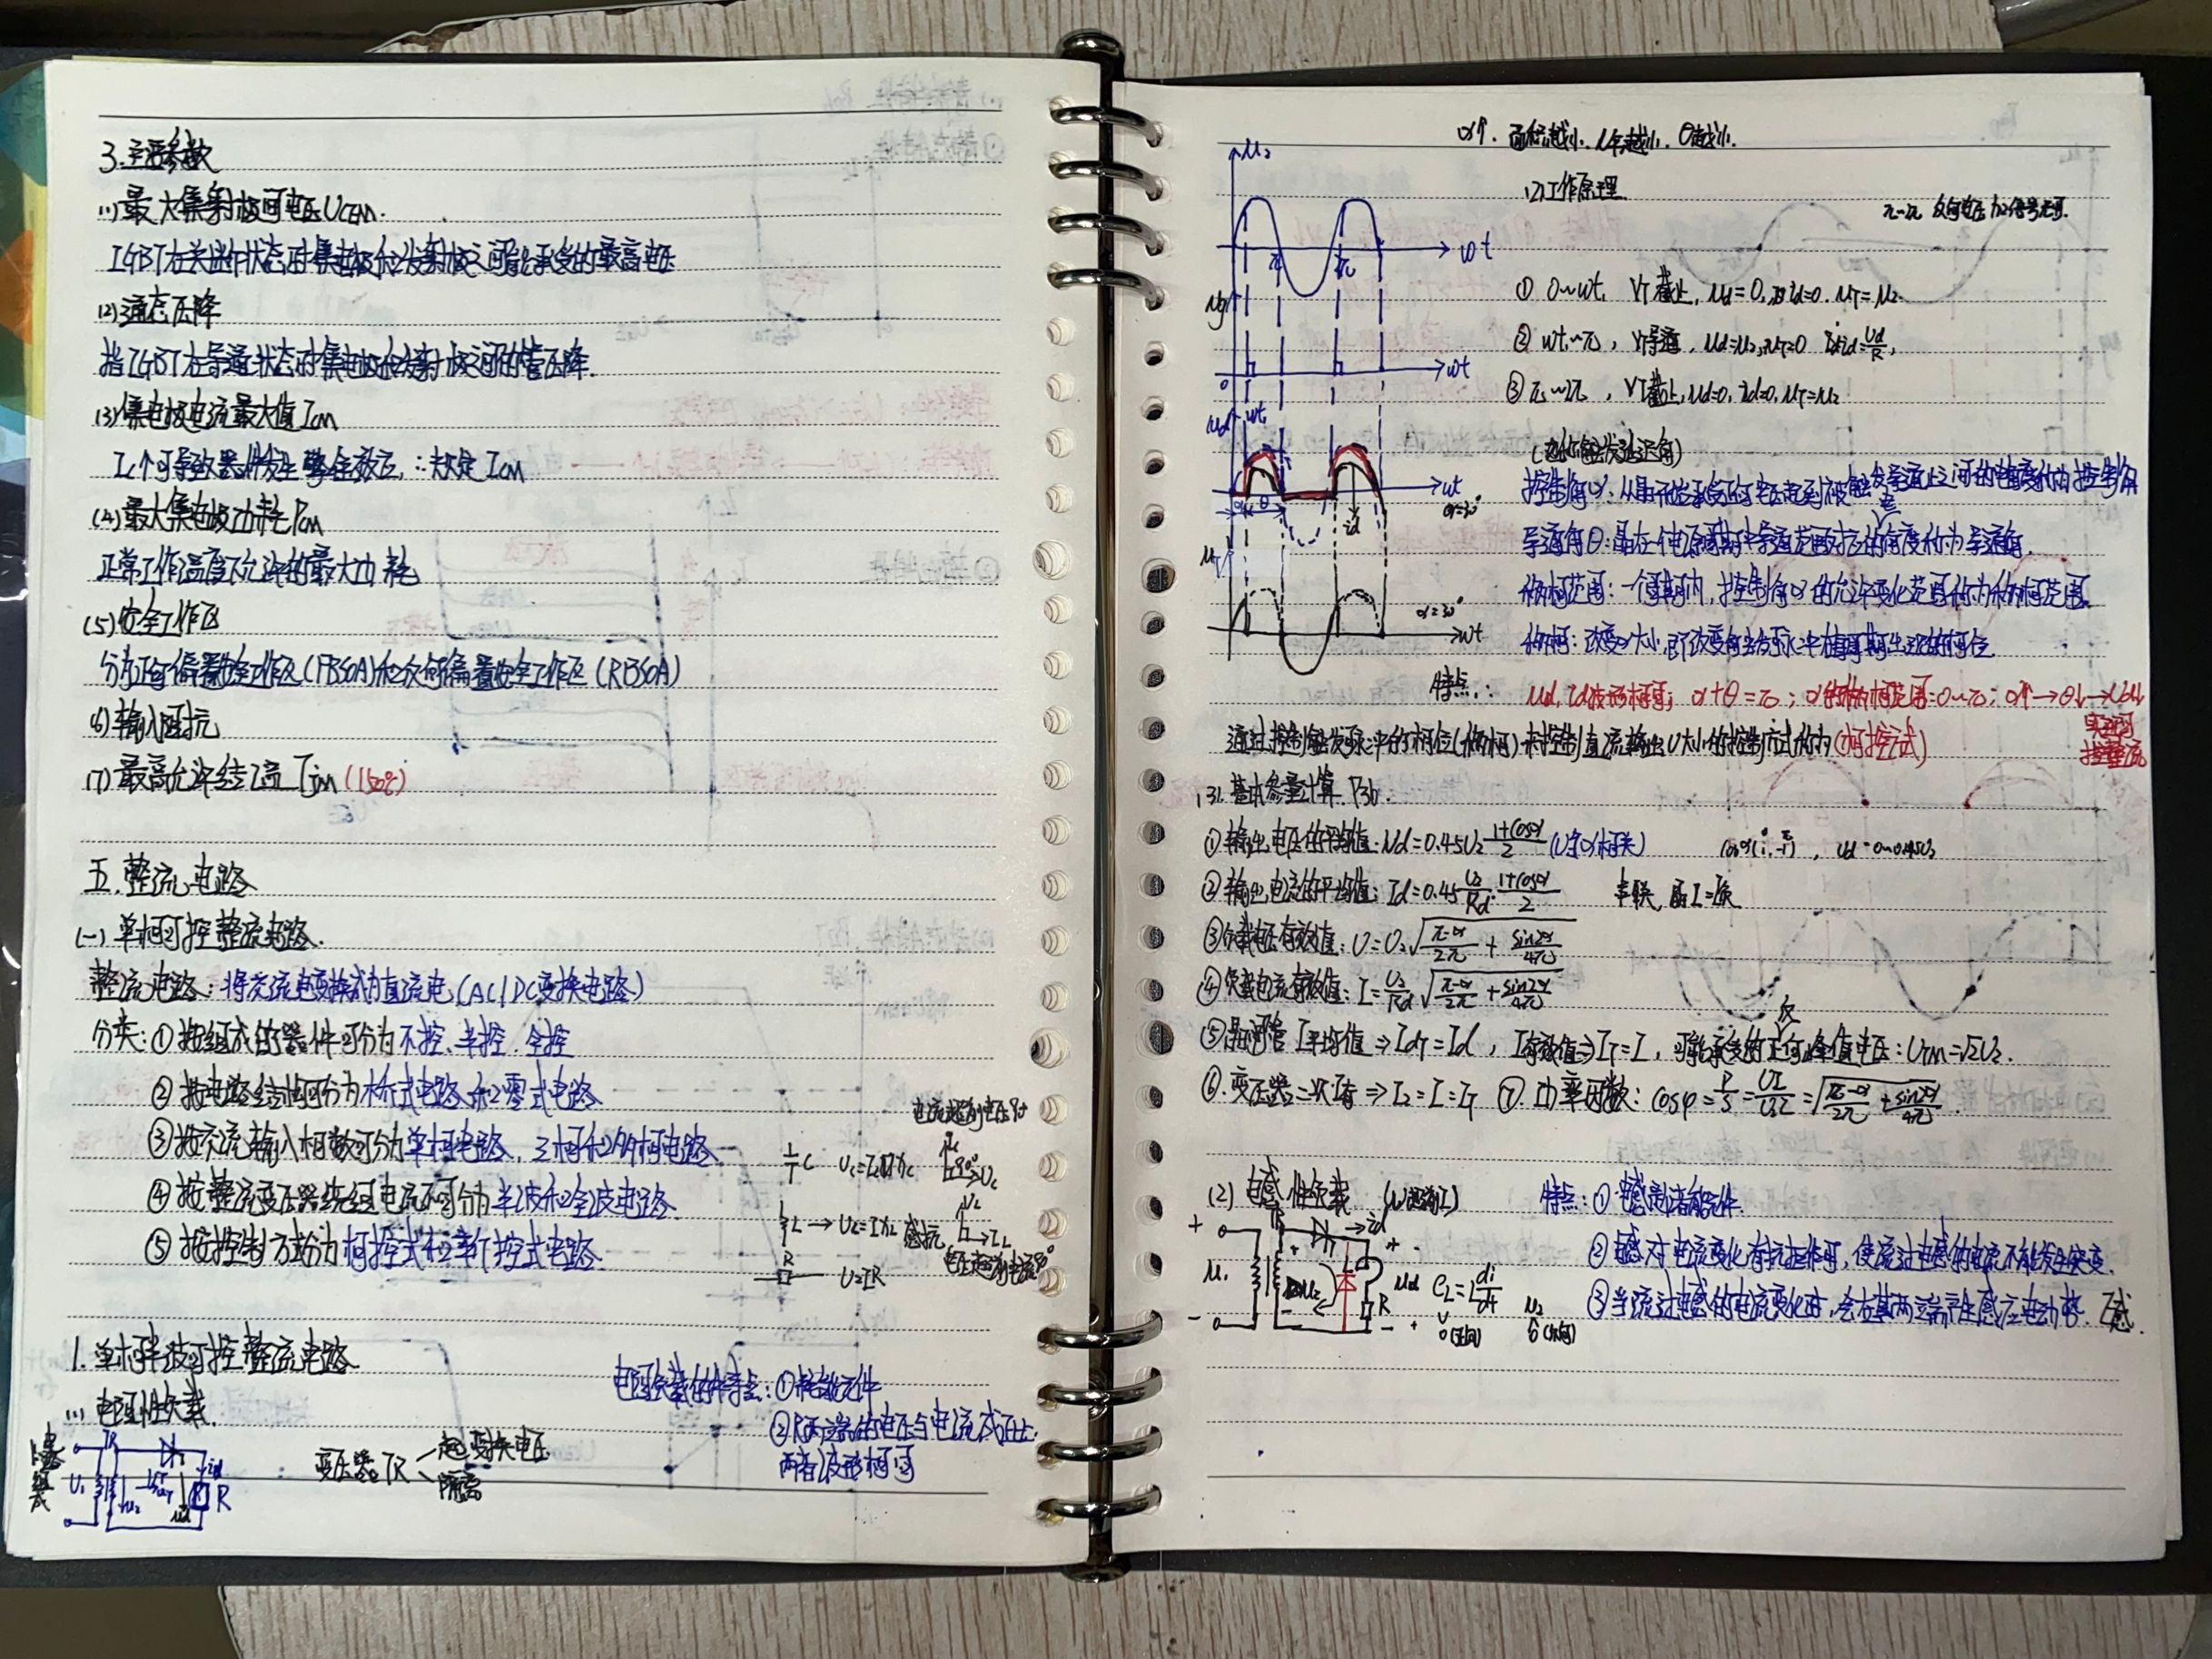 3.主要参数
(1)最大集射极间电压UCEM.
IGBT在关断状态时集电极和发射极之间能承受的最高电压
(2)通态压降
指IGBT在导通状态时集电极和发射极之间的管压降.
(3)集电极电流最大值ICM
IC↑可导致器件发生擎住效应,∴规定ICM
(4)最大集电极功耗PCM
正常工作温度下允许的最大功耗
(5)安全工作区
分为正向偏置安全工作区(FBSOA)和反向偏置安全工作区(RBSOA)
(6)输入阻抗
(7)最高允许结温TjM(150℃)
五.整流电路
(一)单相可控整流电路.
整流电路:将交流电变换成为直流电(AC/DC变换电路)
分类:①按组成的器件可分为不控、半控、全控
②按电路结构可分为桥式电路和零式电路
③按交流输入相数可分为单相电路,三相和多相电路
④按整流变压器绕组电流不同分为半波和全波电路.
⑤按控制方式分为相控式和斩控式电路.
C
L → 感抗
R
U=IR
1.单相半波可控整流电路
(1)电阻性负载.
TR
U1 u2 uT ud id R
变压器TR
起变换电压
隔离
电阻负载的特点:①耗能元件
②R两端的电压与电流成正比,
两者波形相同
α↑.面积越小,
(2)工作原理
u2
ωt
ug
ωt
ud
ωt
id
uT
ωt
①0~ωt1 VT截止,ud=0,id=0.uT=u2
②ωt1~π,VT导通,ud=u2,uT=0 id=ud/R,
③π~2π,VT截止,ud=0,id=0,uT=u2
(也称触发延迟角)
控制角α:从晶闸管承受正向电压起到被触发导通止之间的电角度称为控制角
导通角θ:晶在一个电源周期中导通范围对应的角度称为导通角.
移相范围:一个周期内,控制角α的允许变化范围称为移相范围.
移相:改变α大小,即改变触发脉冲在每周期出现的相位
特点:ud,id波形相同;α+θ=π;α的移相范围=0~π;α↑→θ↓→Ud↓
实现可
控整流
通过控制触发脉冲的相位(移相)来控制直流输出U大小的控制方式称为(相控式)
(3)基本参量计算.P36.
①输出电压的平均值:Ud=0.45U2 (1+cosα)/2 (U与α相关)
②输出电流的平均值:Id=0.45 U2/Rd·(1+cosα)/2
③负载电压有效值:U=U2√((π-α)/2π + sin2α/4π)
④负载电流有效值:I=U2/Rd √((π-α)/2π + sin2α/4π)
⑤晶闸管 I平均值⇒IdT=Id,I有效值⇒IT=I,可能承受的正反向峰值电压:UTM=√2U2.
⑥变压器二次 ⇒I2=I=IT ⑦功率因数:cosφ=P/S=UI/U2I=√((π-α)/2π + sin2α/4π).
(2)电感性负载 特点:①电感是储能元件.
②电感对电流变化有抗拒作用,使流过电感的电流不能发生突变.
③当流过电感的电流变化时,会在其两端产生感应电动势.
TR
id
u1 u2 ud R
eL=L di/dt